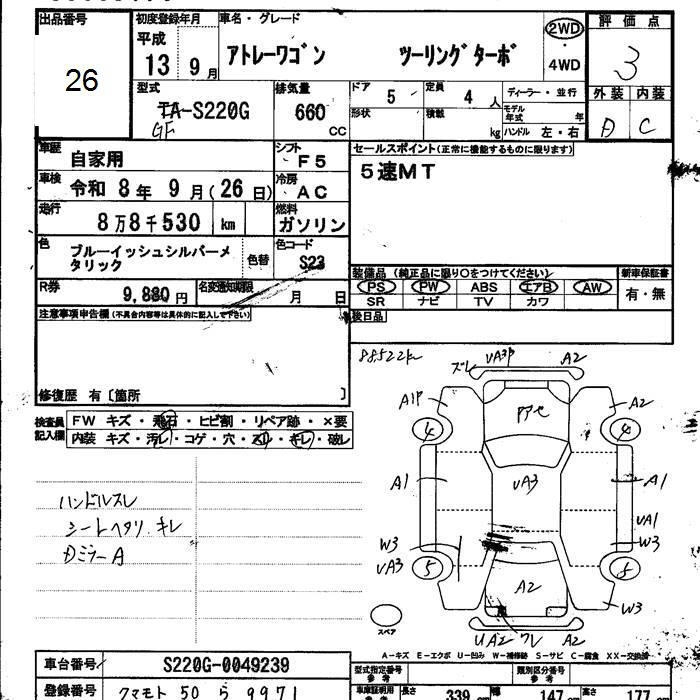 出品番号 初度登録年月 車名・グレード 評価点
26
平成 13 9月 アトレーワゴン ツーリングターボ 2WD・4WD 3
型式 排気量 ドア 5 定員 4人 ディーラー・並行 外装 内装
TA-S220G 660 CC 形状 積載 kg モデル年式 年 ハンドル 左・右 C
GF
車歴 自家用 シフト F5 セールスポイント(正常に機能するものに限ります)
車検 令和 8年 9月(26日) 冷房 AC 5速MT
走行 8万8千530 km 燃料 ガソリン
色 ブルーイッシュシルバーメタリック 色替 色コード S23
装備品 (純正品に限り○をつけてください) 新車保証書
R券 9,880円 名変通知期限 月 日 PS PW ABS エアB AW 有・無
SR ナビ TV カワ
注意事項申告欄(不具合内容等は具体的に記入して下さい) 後日品
修復歴 有〔箇所 〕
検査員記入欄 FW キズ・飛石・ヒビ割・リペア跡・×要
内装 キズ・汚レ・コゲ・穴・スレ・キレ・破レ
ハンドルスレ
シートヘタリ.キレ
Dミラー A
88522km
ズレ VA3P A2
A1P A2
4 4
A1 VA3 A1
VA1
W3 W3
VA3
5
A2 W3
UA2 ワレ A2
スペア
A-キズ E-エクボ U-凹み W-補修跡 S-サビ C-腐食 XX-交換済
車台番号 S220G-0049239 型式指定番号 参考 類別区分番号 参考
登録番号 クマモト 50 ら 9971 車庫証明用 参考 長さ 339 cm 幅 147 cm 高さ 177 cm